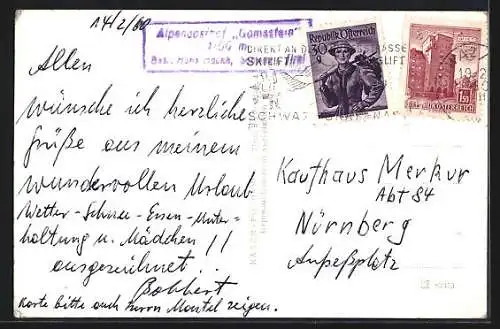 14/2/60
Alpengasthof „Gamsstein"
DIREKT AN D
SKILIFT
SCHWAZ
Republik Österreich
30
1.50
REPUBLIK ÖSTERREICH
Allen
wünsche ich herzliche
Grüße aus meinem
wundervollen Urlaub
Wetter - Schnee - Essen - Unter=
haltung u. Mädchen !!
ausgezeichnet . .
Bobbert
Karte bitte auch Herrn Mantel zeigen.
Kaufhaus Merkur
Abt 84
Nürnberg
Aufseßplatz